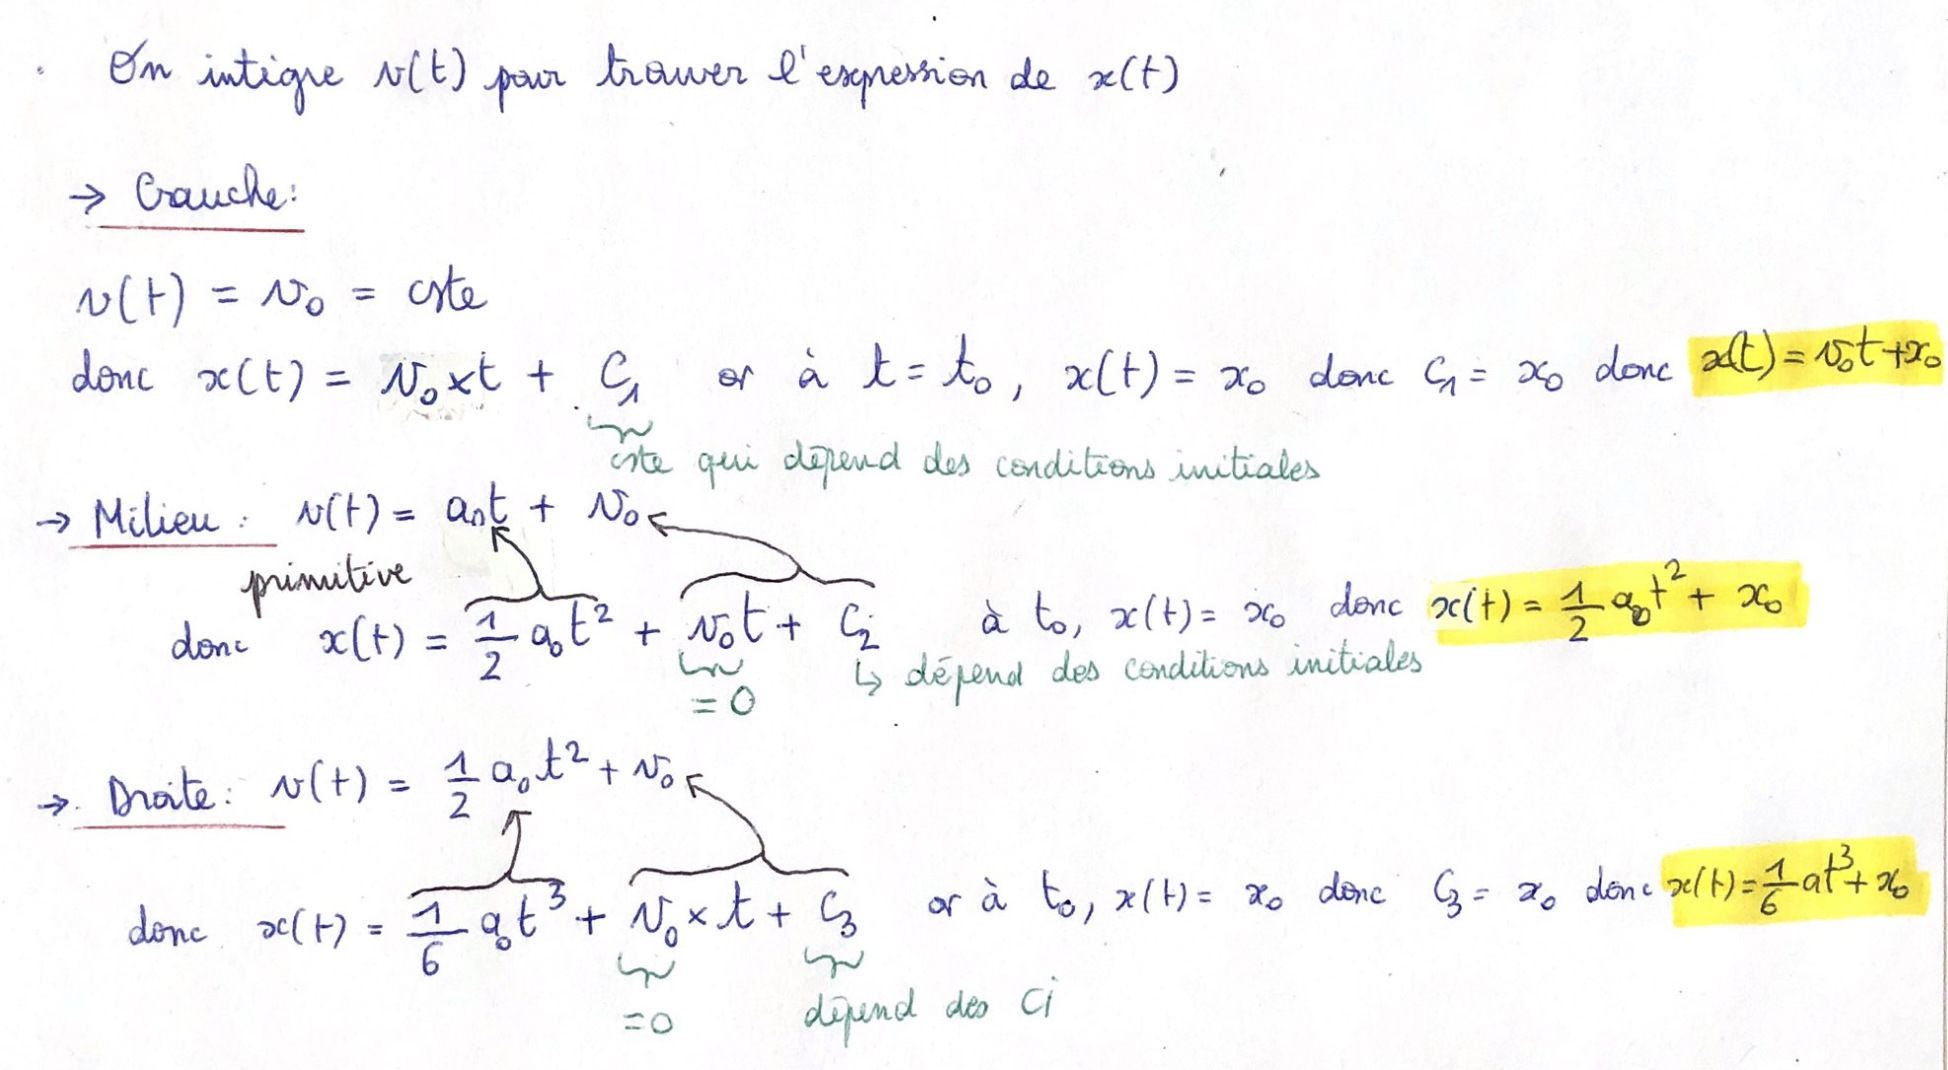 . On intègre v(t) pour trouver l'expression de x(t)
→ Gauche:
v(t) = v₀ = cste
donc x(t) = v₀ × t + C₁ or à t = t₀, x(t) = x₀ donc C₁ = x₀ donc x(t) = v₀t + x₀
cste qui dépend des conditions initiales
→ Milieu : v(t) = a₀t + v₀
primitive
donc x(t) = 1/2 a₀t² + v₀t + C₂ à t₀, x(t) = x₀ donc x(t) = 1/2 a₀t² + x₀
= 0 ↳ dépend des conditions initiales
→ Droite : v(t) = 1/2 a₀t² + v₀
donc x(t) = 1/6 a₀t³ + v₀ × t + C₃ or à t₀, x(t) = x₀ donc C₃ = x₀ donc x(t) = 1/6 at³ + x₀
= 0 dépend des Ci